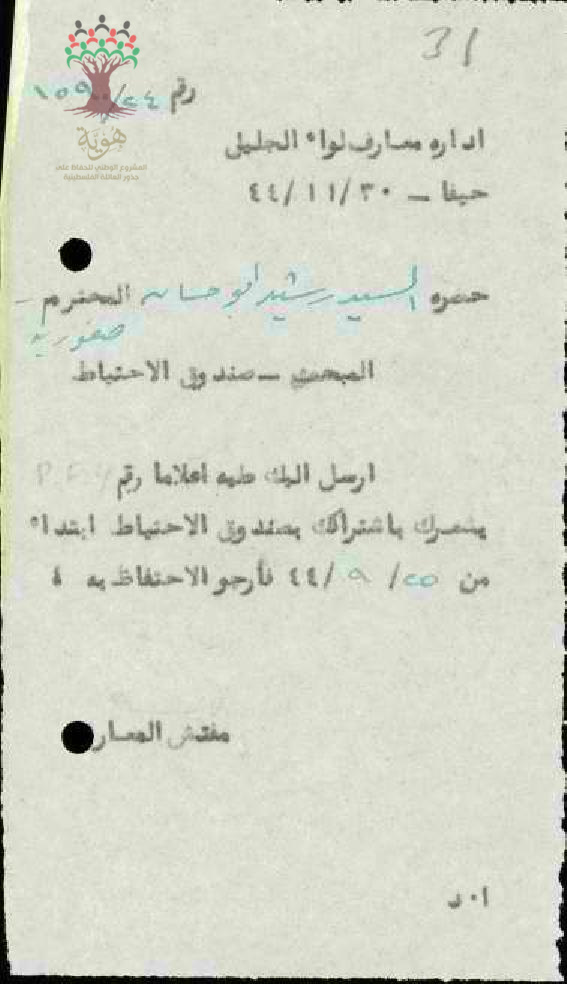 31
رقم ١٥٩٠/٢٤
هوية
المشروع الوطني للحفاظ على
جذور العائلة الفلسطينية
اداره معارف لواء الجليل
حيفا – ٣٠ /١١ /٤٤
حضره السيد رشيد ابو حسان المحترم –
صفوريه
المبحث – صندوق الاحتياط
ارسل اليك طيه اعلاما رقم P.F.4
يشعرك باشتراكك بصندوق الاحتياط ابتداء
من ٢٥ / ٩ /٤٤ فأرجو الاحتفاظ به
مفتش المعار
ا٠ د